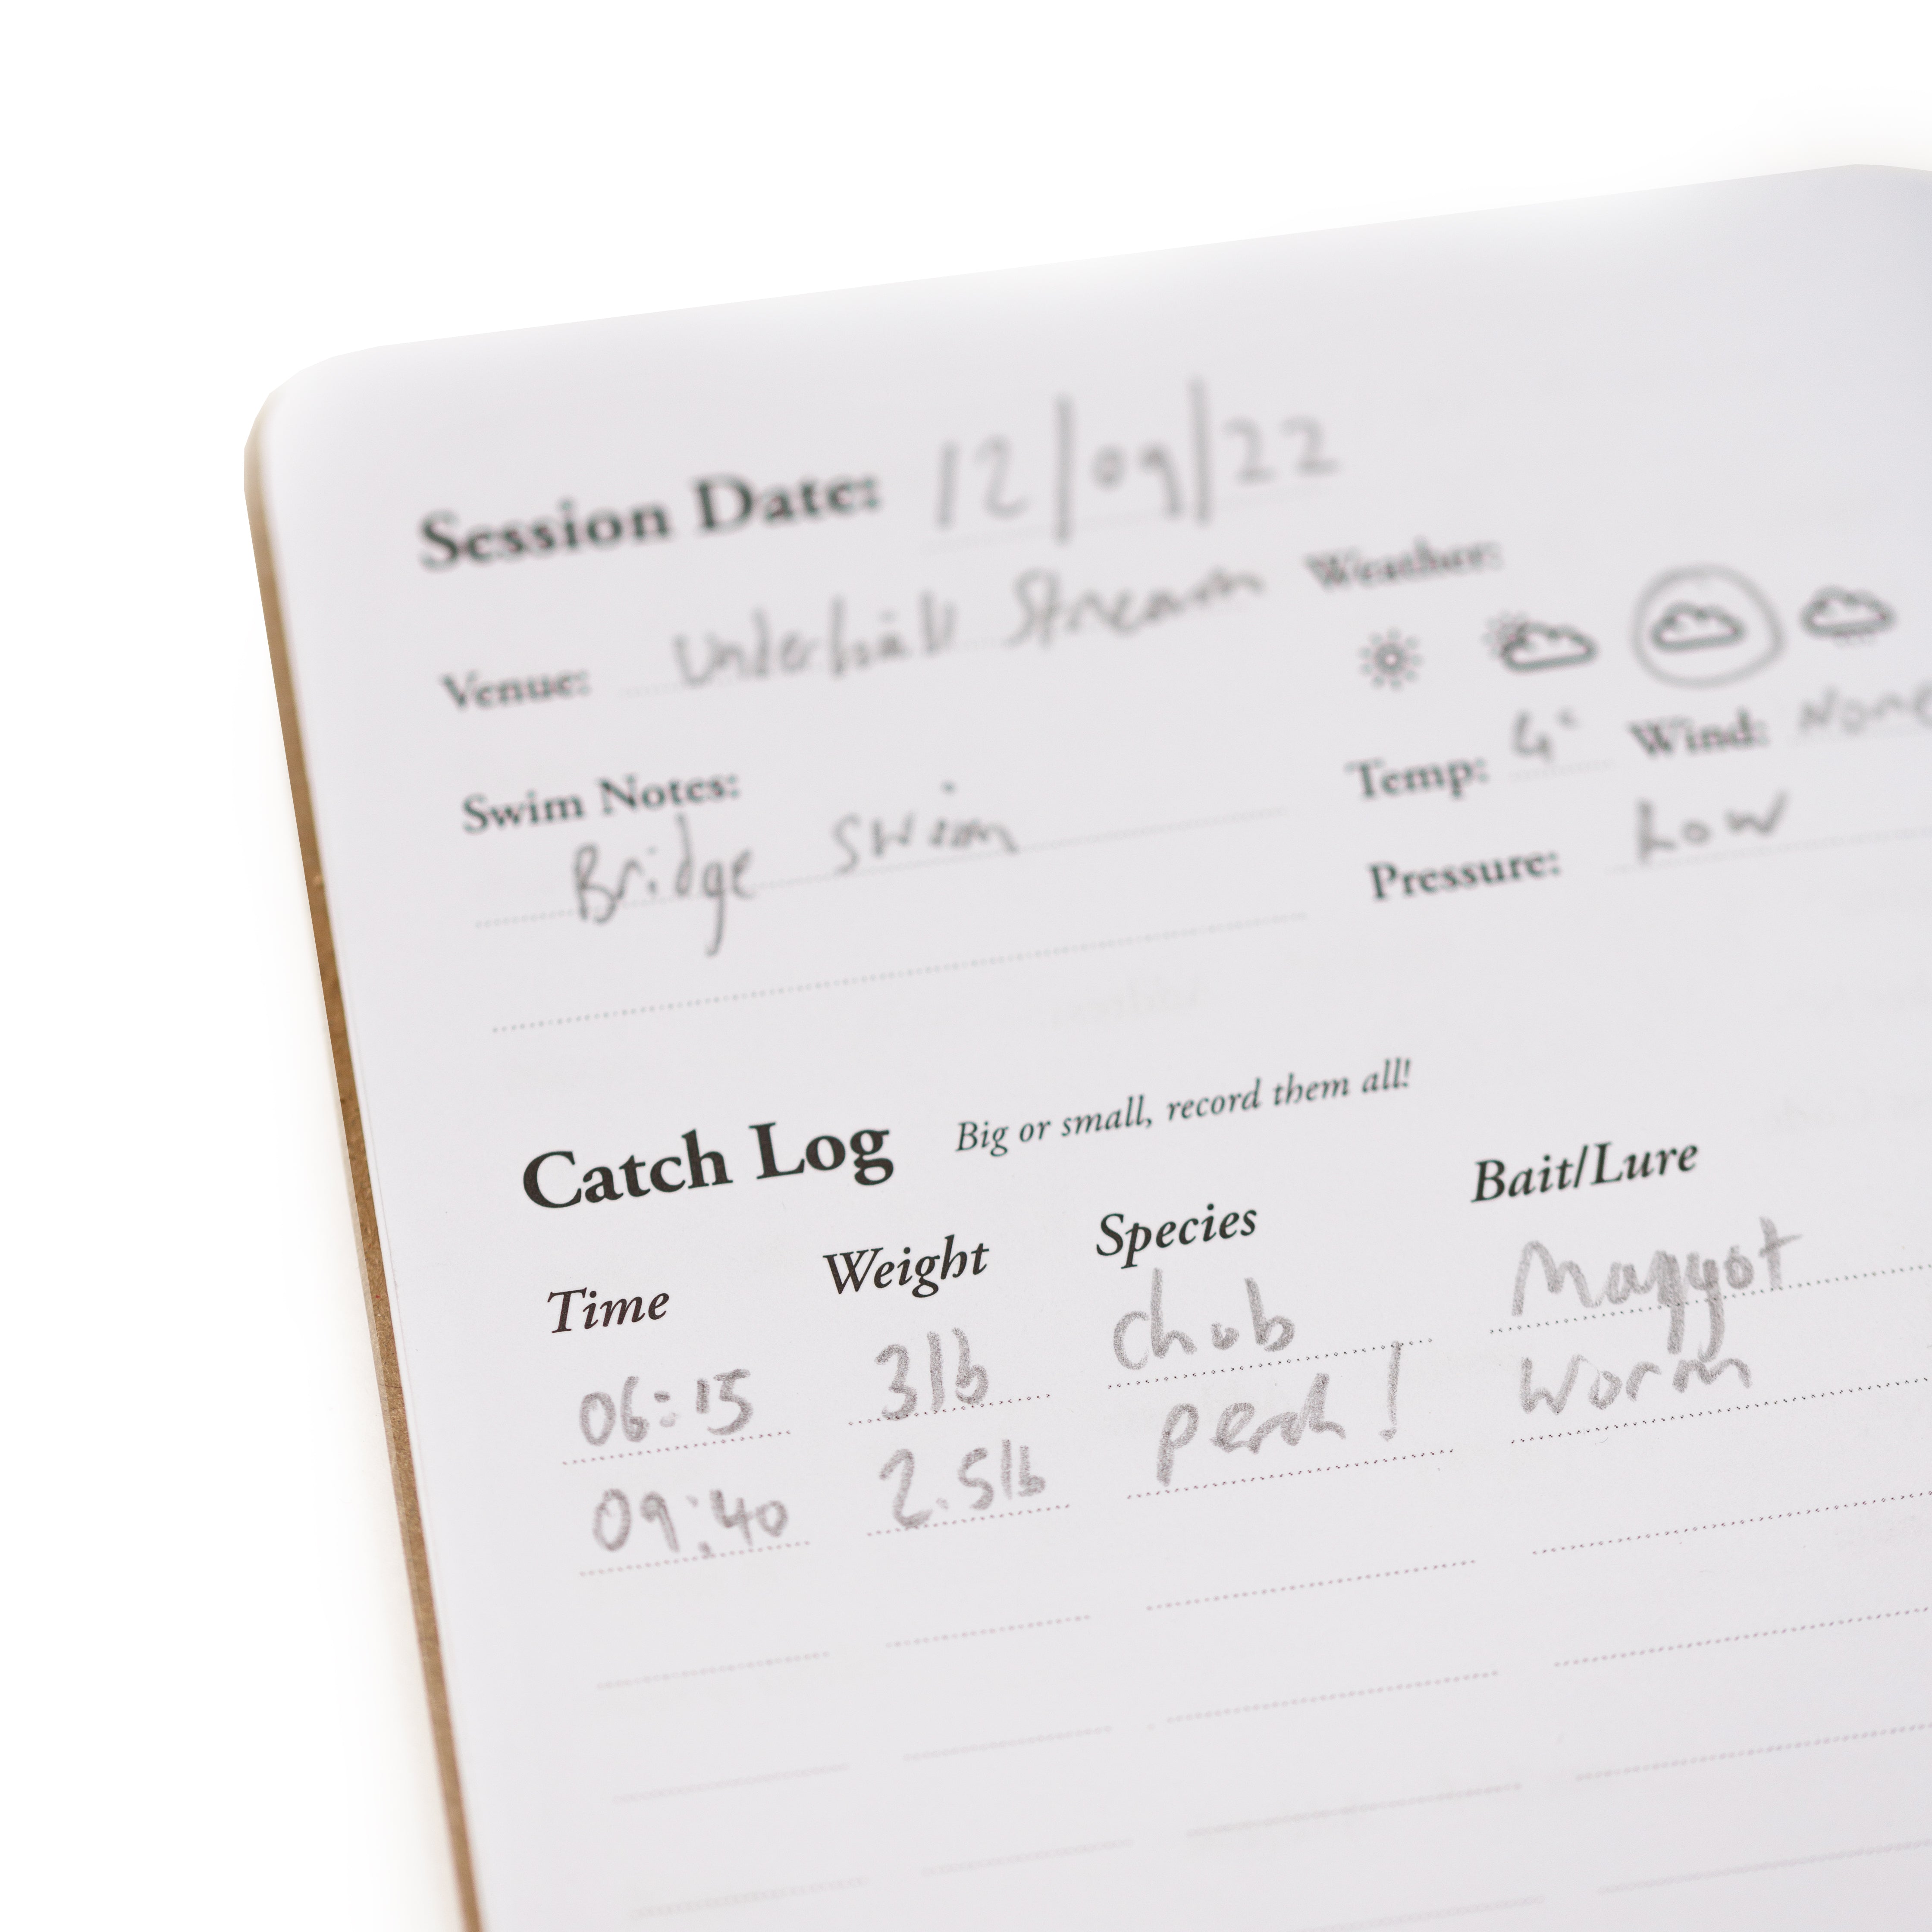 Session Date: 12/09/22
Venue: Underhill Stream
Weather:
Swim Notes:
Bridge Swim
Temp: 4° Wind: None
Pressure: Low
Catch Log Big or small, record them all!
Time Weight Species Bait/Lure
06:15 3lb chub Maggot
09:40 2.5lb perch! Worm